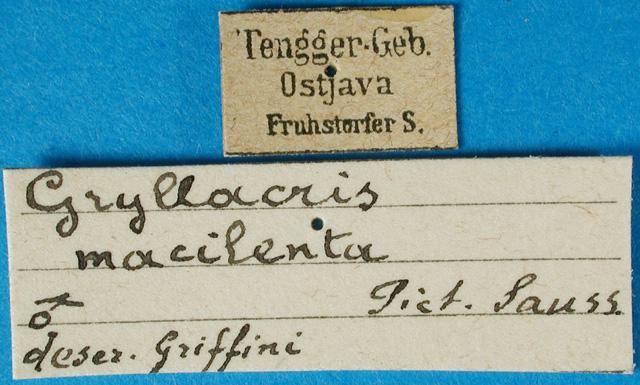 Tengger-Geb.
Ostjava
Fruhstorfer S.
Gryllacris
macilenta
♂ Pict. Sauss.
descr. Griffini